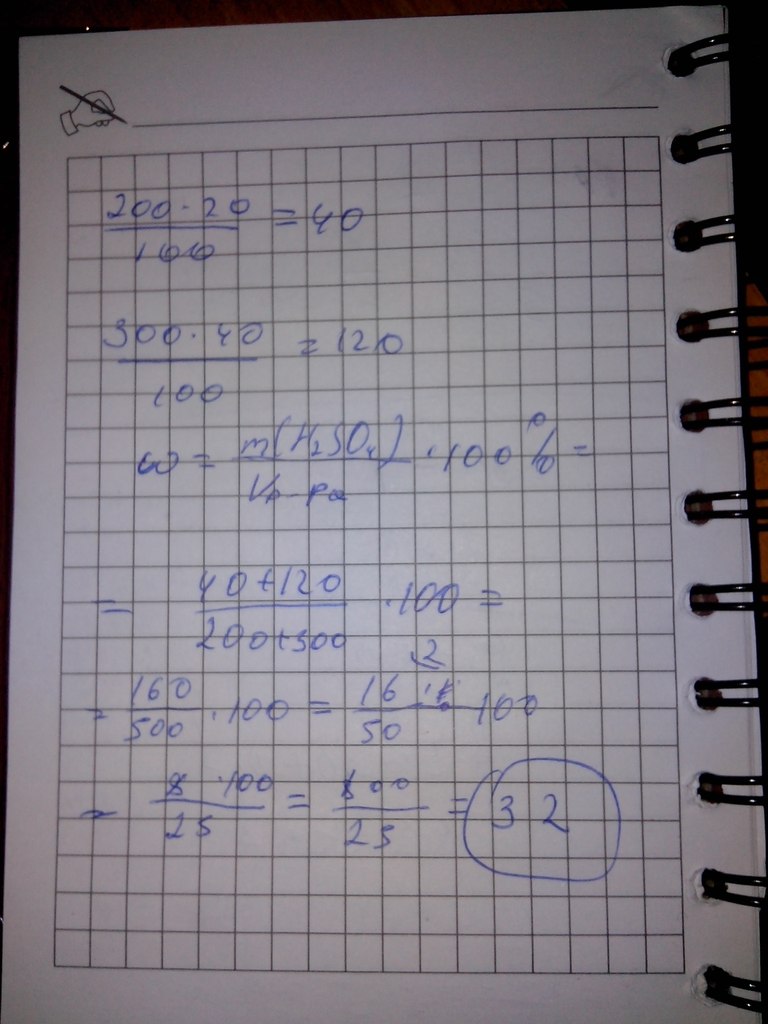 200·20 / 100 = 40
300·40 / 100 = 120
ω = m(H₂SO₄) / Vр-ра ·100% =
= 40+120 / 200+300 ·100 =
= 160 / 500 ·100 = 16 / 50 100
2
= 8 ·100 / 25 = 800 / 25 = 32